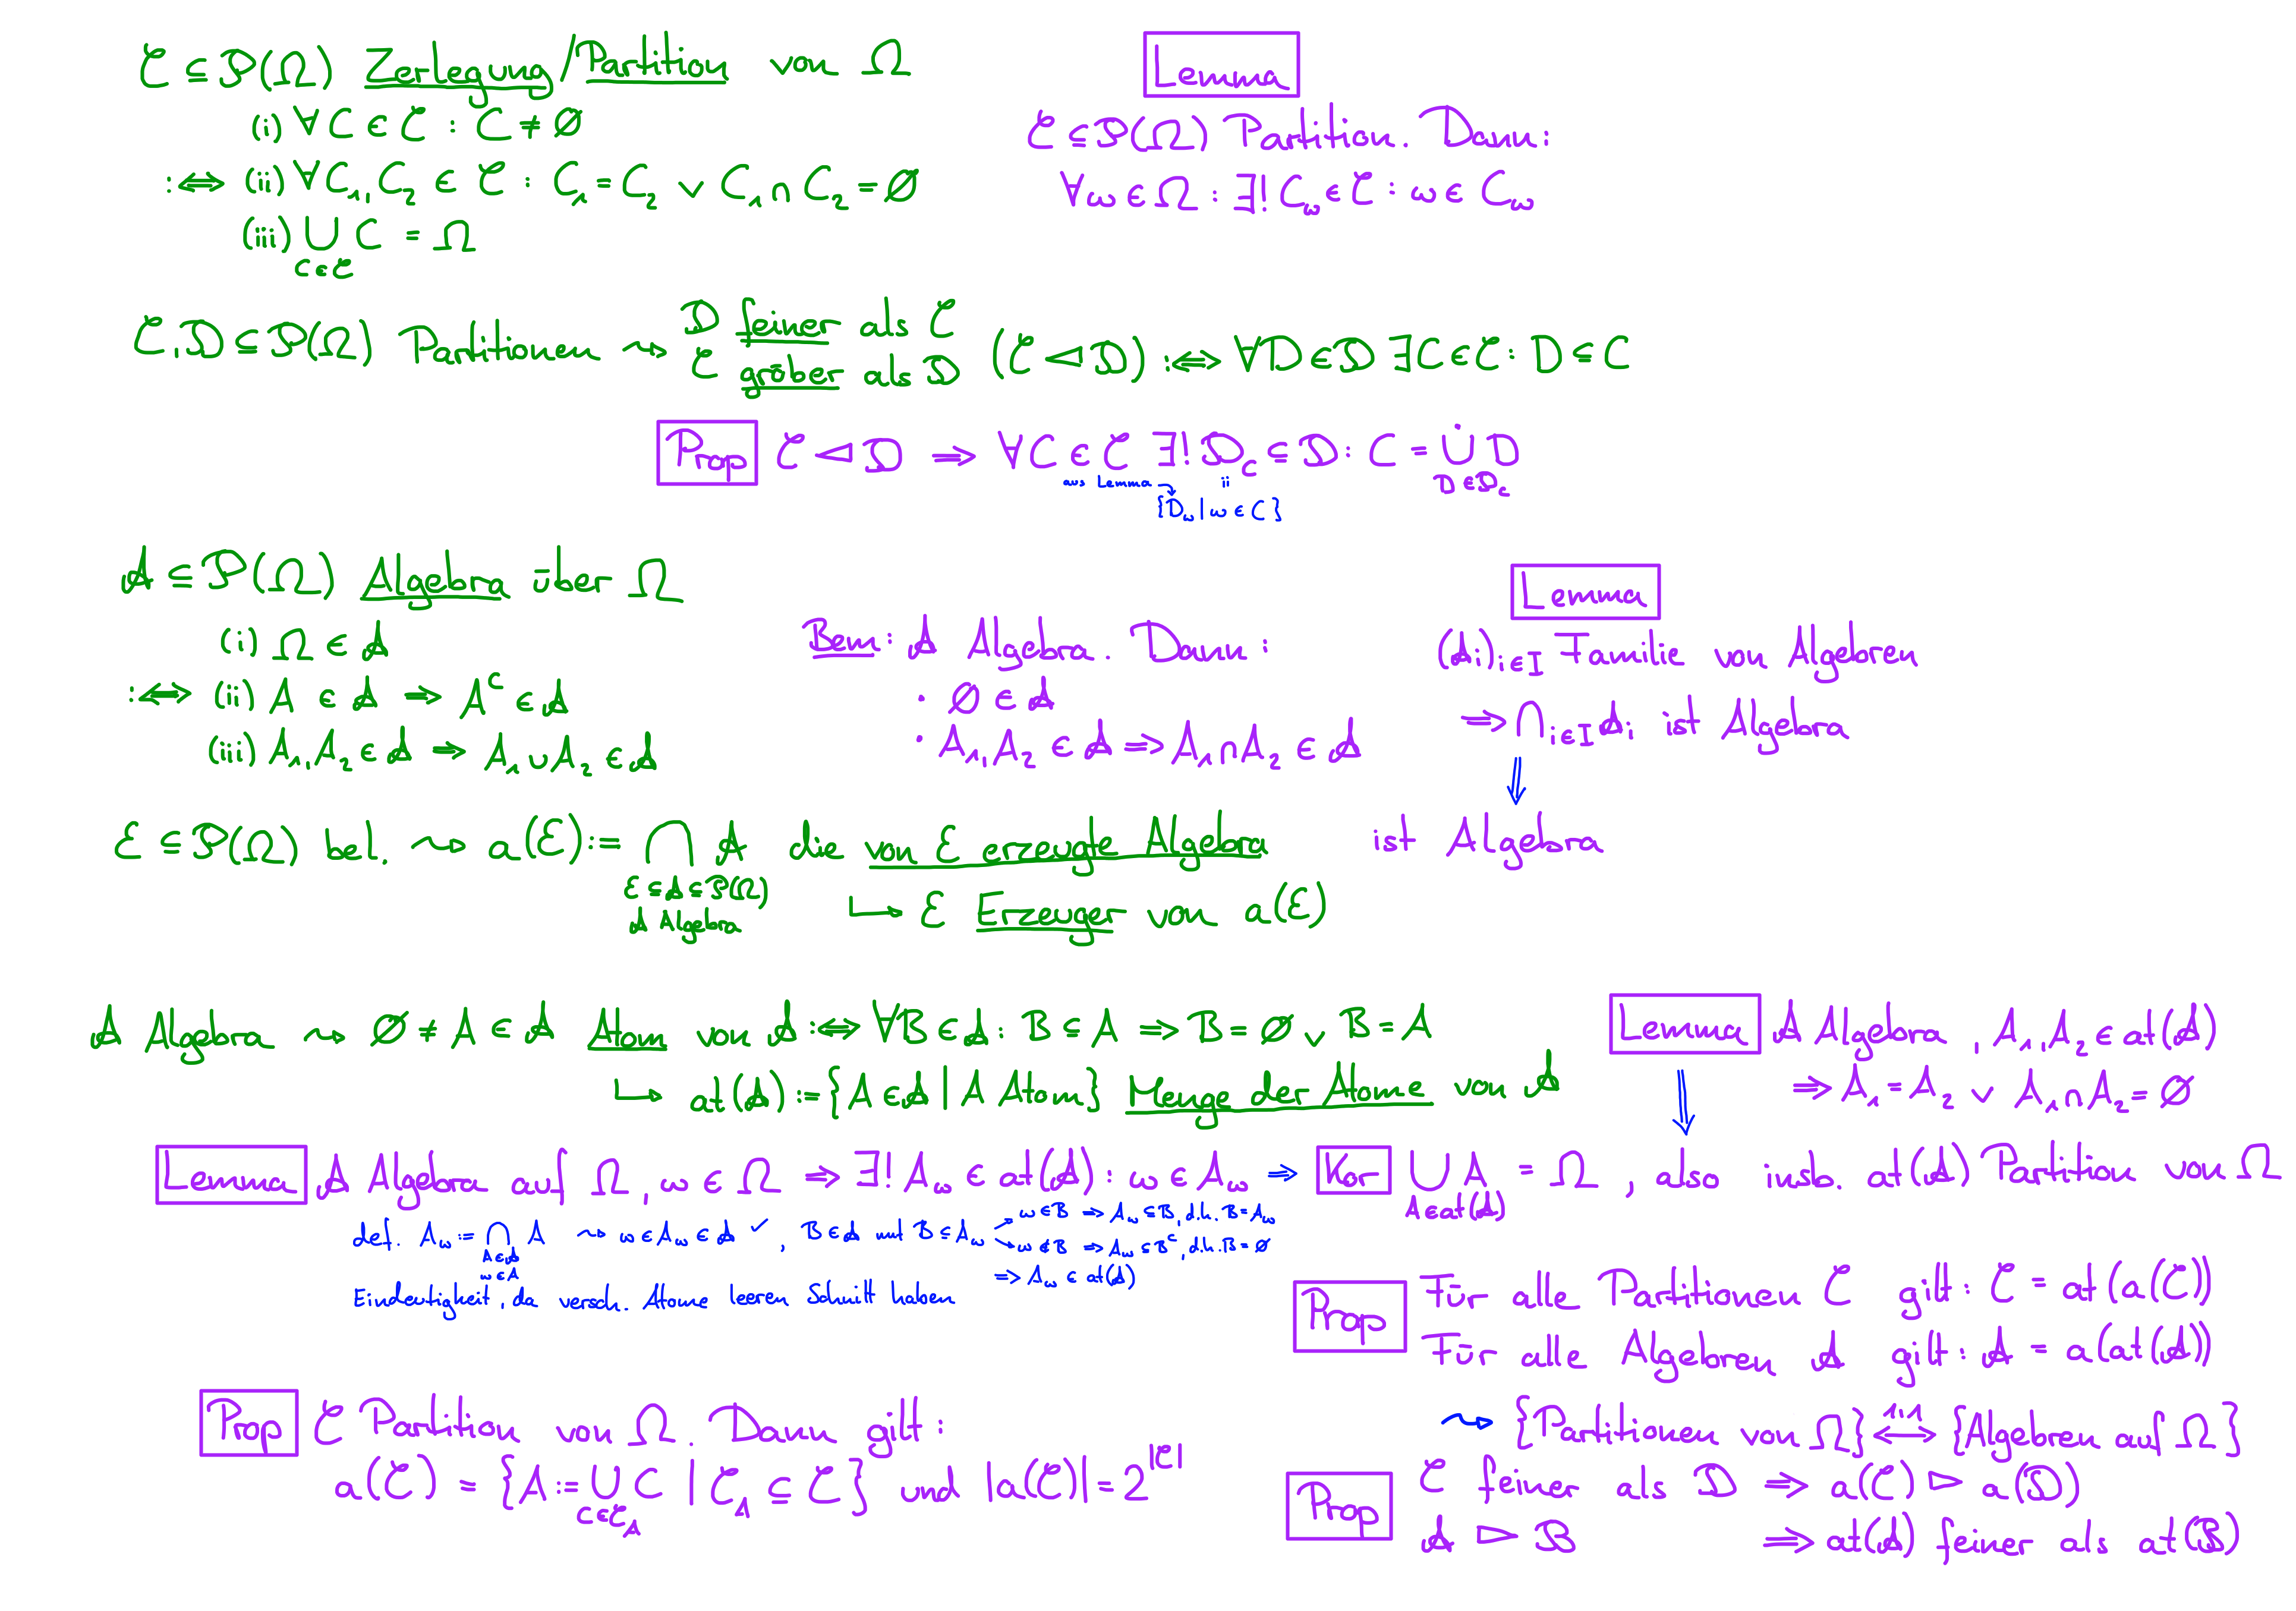 𝒞 ⊆ 𝒫(Ω) Zerlegung/Partition von Ω
(i) ∀C ∈ 𝒞 : C ≠ ∅
:⇔ (ii) ∀C₁, C₂ ∈ 𝒞 : C₁ = C₂ ∨ C₁ ∩ C₂ = ∅
(iii) ⋃ C = Ω
C ∈ 𝒞
Lemma
𝒞 ⊆ 𝒫(Ω) Partition. Dann:
∀ω ∈ Ω : ∃! C_ω ∈ 𝒞 : ω ∈ C_ω
𝒞, 𝒟 ⊆ 𝒫(Ω) Partitionen ⇝ 𝒟 feiner als 𝒞
𝒞 gröber als 𝒟
(𝒞 ⊲ 𝒟) :⇔ ∀D ∈ 𝒟 ∃C ∈ 𝒞 : D ⊆ C
Prop 𝒞 ⊲ 𝒟 ⇒ ∀C ∈ 𝒞 ∃! 𝒟_C ⊆ 𝒟 : C = ⋃̇ D
D ∈ 𝒟_C
aus Lemma → ıı
{D_ω | ω ∈ C}
𝒜 ⊆ 𝒫(Ω) Algebra über Ω
(i) Ω ∈ 𝒜
:⇔ (ii) A ∈ 𝒜 ⇒ Aᶜ ∈ 𝒜
(iii) A₁, A₂ ∈ 𝒜 ⇒ A₁ ∪ A₂ ∈ 𝒜
Bem: 𝒜 Algebra. Dann:
· ∅ ∈ 𝒜
· A₁, A₂ ∈ 𝒜 ⇒ A₁ ∩ A₂ ∈ 𝒜
Lemma
(𝒜ᵢ)_{i∈I} Familie von Algebren
⇒ ⋂_{i∈I} 𝒜ᵢ ist Algebra
⇓
ℰ ⊆ 𝒫(Ω) bel. ⇝ a(ℰ) := ⋂ 𝒜 die von ℰ erzeugte Algebra ist Algebra
ℰ ⊆ 𝒜 ⊆ 𝒫(Ω)
𝒜 Algebra
↳ ℰ Erzeuger von a(ℰ)
𝒜 Algebra ⇝ ∅ ≠ A ∈ 𝒜 Atom von 𝒜 :⇔ ∀B ∈ 𝒜 : B ⊆ A ⇒ B = ∅ ∨ B = A
↳ at(𝒜) := {A ∈ 𝒜 | A Atom} Menge der Atome von 𝒜
Lemma 𝒜 Algebra, A₁, A₂ ∈ at(𝒜)
⇒ A₁ = A₂ ∨ A₁ ∩ A₂ = ∅
⇓
Lemma 𝒜 Algebra auf Ω, ω ∈ Ω ⇒ ∃! A_ω ∈ at(𝒜) : ω ∈ A_ω ⇒ Kor ⋃ A = Ω, also insb. at(𝒜) Partition von Ω
A ∈ at(𝒜)
def. A_ω := ⋂ A ⇝ ω ∈ A_ω ∈ 𝒜 ✓, B ∈ 𝒜 mit B ⊆ A_ω
A ∈ 𝒜
ω ∈ A
→ ω ∈ B ⇒ A_ω ⊆ B, d.h. B = A_ω
→ ω ∉ B ⇒ A_ω ⊆ Bᶜ, d.h. B = ∅
⇒ A_ω ∈ at(𝒜)
Eindeutigkeit, da versch. Atome leeren Schnitt haben
Prop Für alle Partitionen 𝒞 gilt: 𝒞 = at(a(𝒞))
Für alle Algebren 𝒜 gilt: 𝒜 = a(at(𝒜))
⇝ {Partitionen von Ω} ⟷ {Algebren auf Ω}
1:1
Prop 𝒞 Partition von Ω. Dann gilt:
a(𝒞) = {A := ⋃ C | 𝒞_A ⊆ 𝒞} und |a(𝒞)| = 2^{|𝒞|}
C ∈ 𝒞_A
Prop 𝒞 feiner als 𝒟 ⇒ a(𝒞) ⊳ a(𝒟)
𝒜 ⊳ ℬ ⇒ at(𝒜) feiner als at(ℬ)